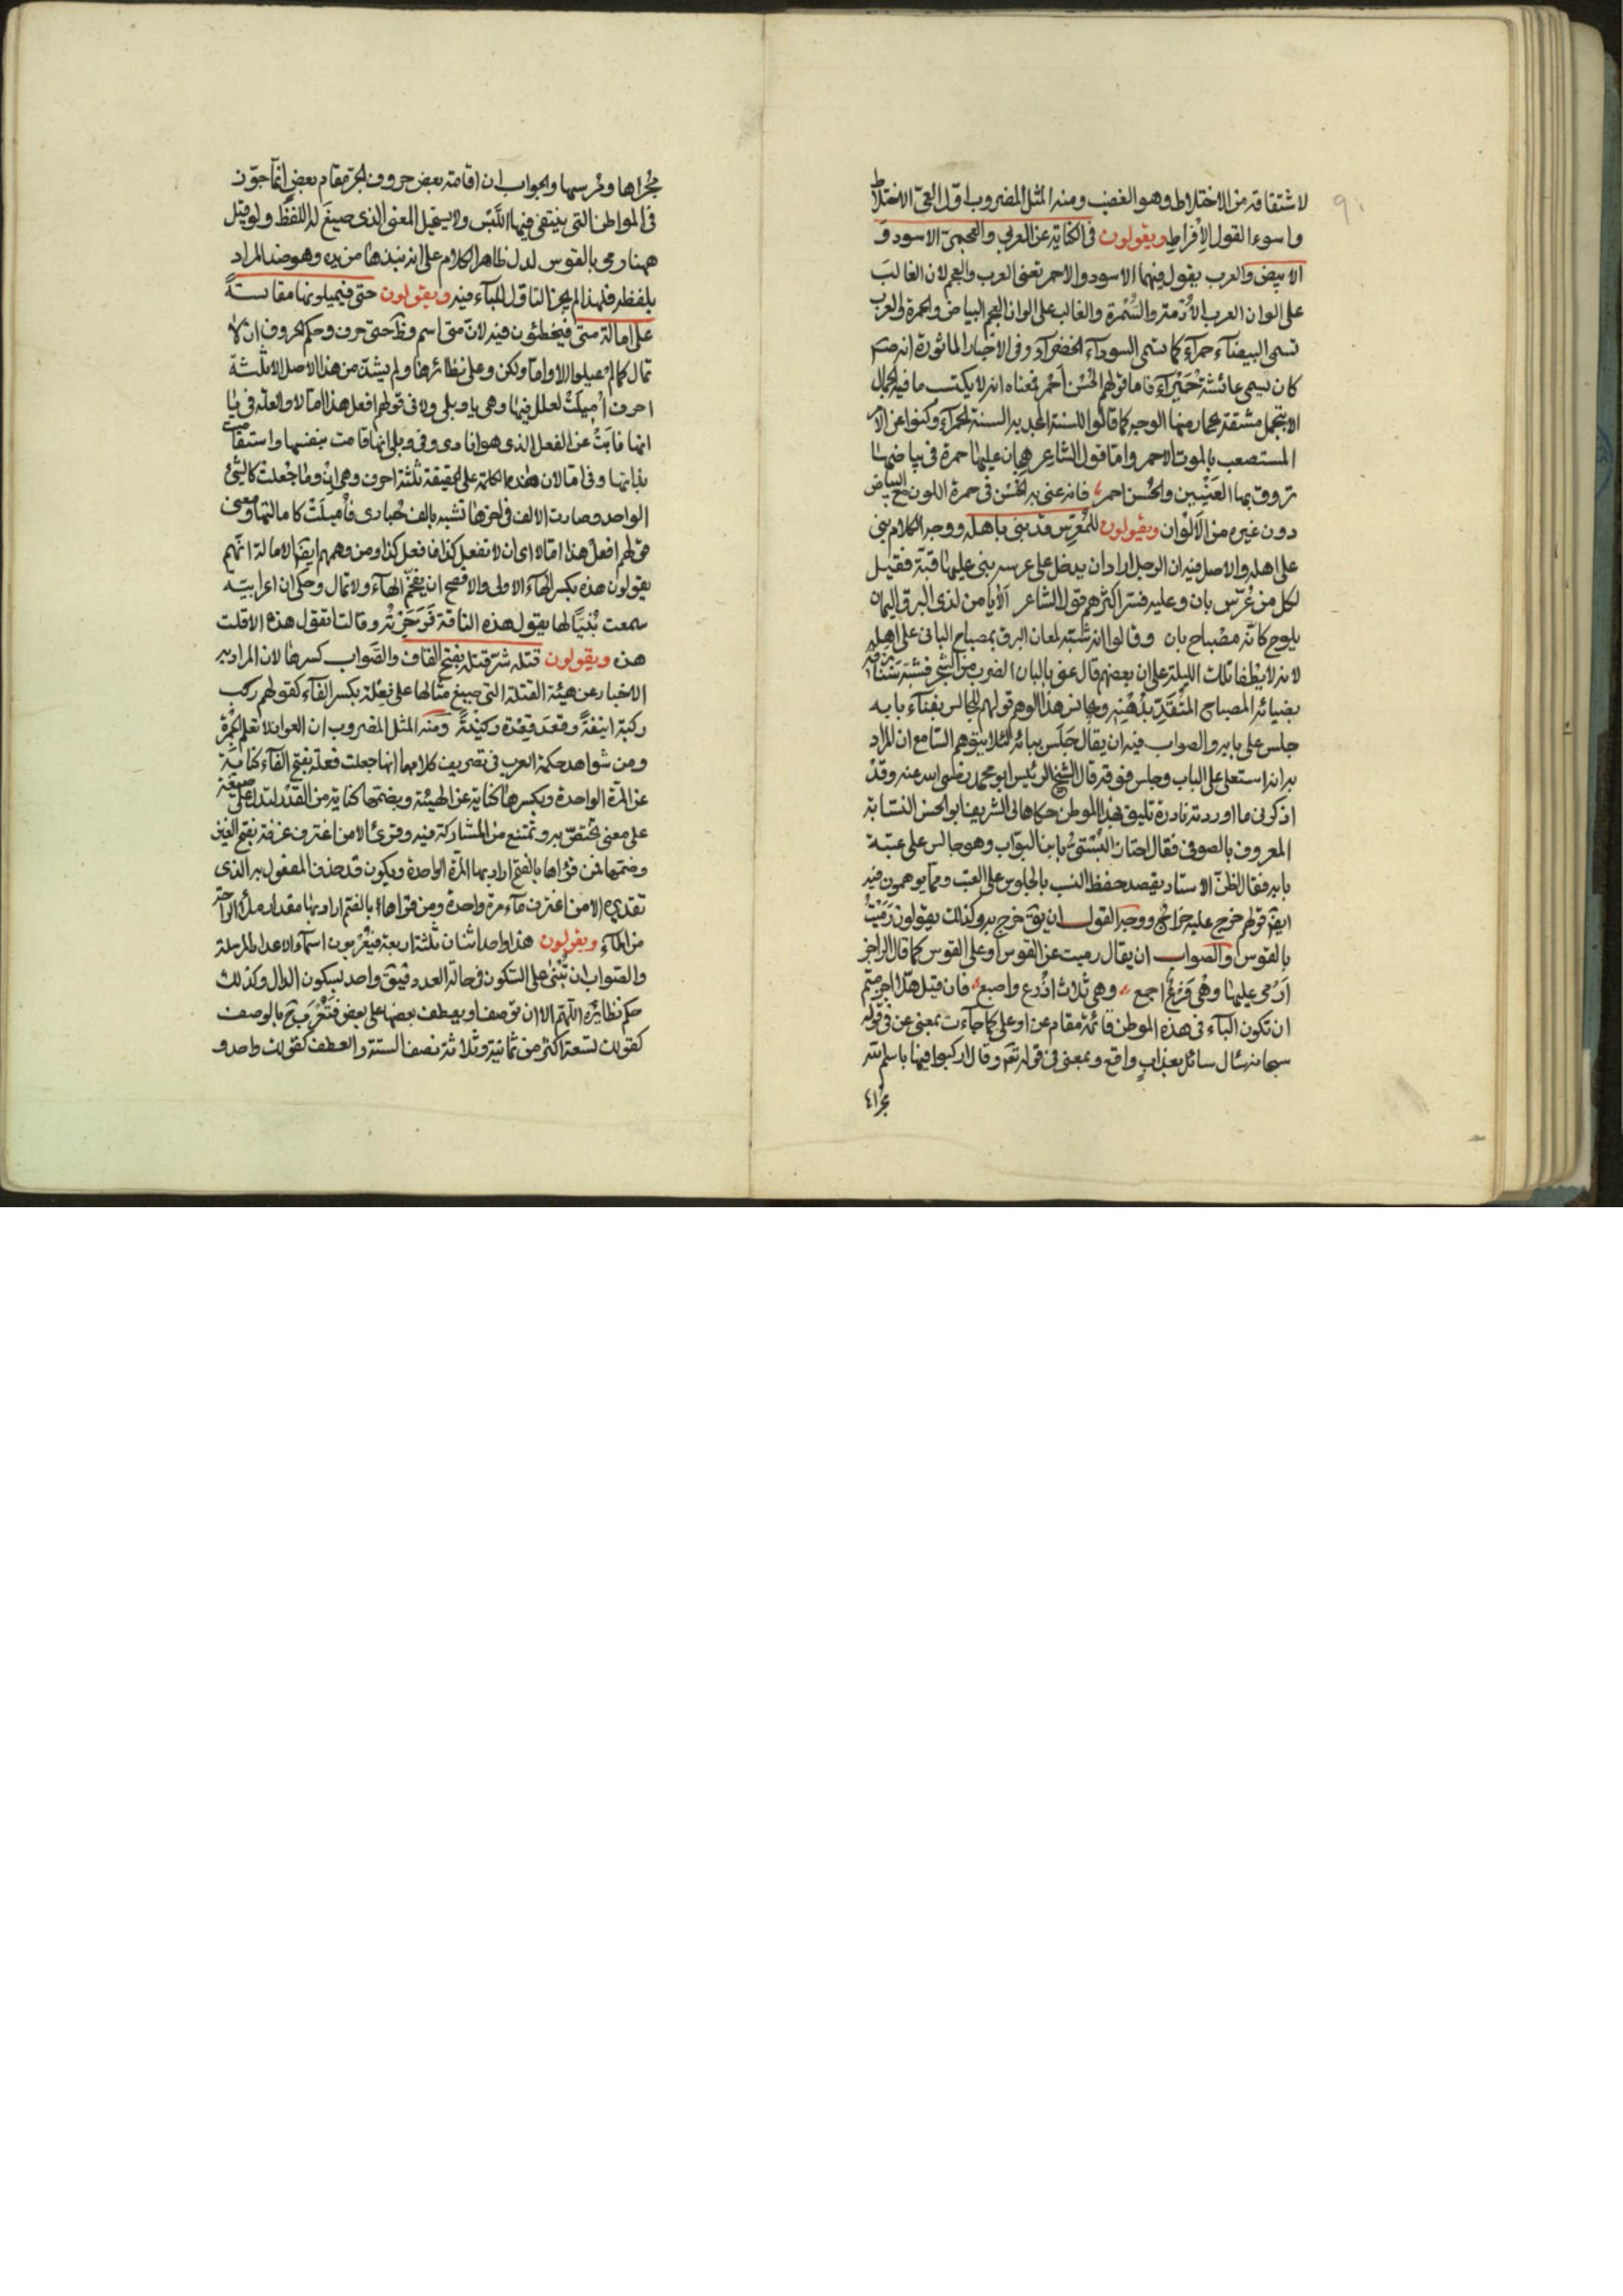 لاشتقاقه من الاختلاط وهو الغضب ومنه المثل المضروب اول العيّ الاختلاط
واسوء القول الافراط ويقولون في الكناية عن العربي والعجميّ الاسود و
الابيض والعرب يقول فيهما الاسود والاحمر تعنى العرب والعجم لان الغالبَ
على الوان العرب الأدمة والسُّمرة والغالب على الوان العجم البياض والحمرة والعرب
تسمى البيضآء حمرآء كما تسمى السودآء الخضرآء وفى الاخبار الماثورة انه صلعم
كان يسمى عائشة حُمَيْرآء فاما قولهم الحُسْن أحمر فمعناه انه لا يكتسب ما فيه الجمال
الا بتحمل مشقة يحمار منها الوجه كما قالوا للسنة المجدبة السنة الحمرآء وكنوا عن الامر
المستصعب بالموت الاحمر واما قول الشاعر هجان عليها حمرة فى بياضها
تروق بها العَيْنين والحُسن احمر فانه عنى به الحُسن فى حمرة اللون مع البياض
دون غيره من الألوان ويقولون للمُعرِّس قد بنى باهله ووجه الكلام بنى
على اهله والاصل فيه ان الرجل اذا اراد ان يدخل على عرسه بنى عليها قبّة فقيل
لكل من عُرّس بانٍ وعليه فسّر اكثرهم قول الشاعر ألا يا من لذى البرق اليمان
يلوح كانّه مصباح بان وقالوا انه شبّه لمعان البرق بمصباح البانى على اهله
لانه لا يُطفا تلك الليلة على ان بعضهم قال عنى بالبان الضرب من الشجر فشبّه سَنَا برقه
بضيآء المصباح المتّقد بدُهنِه ومجانس هذا الوهم قولهم للجالس بفنآء بابه
جلس على بابه والصواب فيه ان يقال جَلَس ببابه لئلا يتوهم السّامع ان المراد
به انه استعلى على الباب وجلس فوقه قال الشيخ الرئيس ابو محمد رضى الله عنه وقد
اذكرنى ما اوردته نادرة تليق بهذا الموطن حكاها لى الشريف ابو الحسن النسّابة
المعروف بالصوفى فقال اجتاز البُسْتىّ بابن البوّاب وهو جالس على عتبة
بابه فقال اظنّ الاستاد يقصد حفظ النسب بالجلوس على العتب ومما يوهمون فيه
ايضا قولهم خرج عليه خراجٌ ووجه القول ان يقال خرج به وكذلك يقولون رَمَيْتُ
بالقوس والصواب ان يقال رميت عن القوس او على القوس كما قال الراجز
أرمى عليها وهْى فَرْعٌ اجمع وهى ثلاث اذرع واصبع فان قيل هلّا اجزتم
ان تكون البآء فى هذه الموطن قائمة مقام عن او على كما جاءت بمعنى عن فى قوله
سبحانه سَال سائل بعذابٍ واقع وبمعنى فى قوله تعالى وقال اركبوا فيها باسم الله
مجرا
مجُراها ومرسيها والجواب ان اقامة بعض حروف الجرّ مقام بعض انما جوّز
فى المواطن التى ينتفى فيها اللَّبْس ولا يستحيل المعنى الذى صيغَ له اللفظ ولو قيل
ههنا رمى بالقوس لدلّ ظاهر الكلام على انه نبذها من يده وهو ضد المراد
بلفظه فلهذا لم يجز التاوّل للبآء فيه ويقولون حتى فيميلونها مقايسةً
على امالة متى فيخطئون فيه لانّ متى اسم وحتى حرف وحكم الحروف ان لا
تمال كما لم يميلوا الا واما ولكن وعلى نظائرها ولم يشذّ من هذا الاصل الا ثلثة
احرف اُميلَتْ لعلل فيها وهى يا وبلى ولا فى قولهم افعل هذا امّا لا والعلّة فى يا
انها نابَتْ عن الفعل الذى هو انادى وفى وبلى انها قامت بنفسها واستقلّت
بذاتها وفى امّا لا ان هذه الكلمة على الحقيقة ثلثة احرف وهى اِنْ وما ولا جُعلتْ كالشئ
الواحد وصارت الالف فى اخرها تشبه بالف حُبارى فأميلَتْ كامالتها ومعنى
قولهم افعلْ هذا امّا لا اى ان لا تفعل كذا فافعل كذا ومن وهمهم ايضا الامالة انّهم
يقولون هذه بكسر الهآء الاولى والافصح ان تفخّم الهآء ولا تمال وحُكى ان اعرابيّة
سمعت بُنَيًّا لها يقول هذه الناقة فَزَجَرَتْه وقالت اتقول هذه الا قلت
هذه ويقولون قتله شرّ قتلة بفتح القاف والصَّواب كسرها لان المراد به
الاخبار عن هيئة القتلة التى صيغ مثالها على فِعْلة بكسر الفآء كقولهم ركب
ركبة انيقةً وقعد قِعْدة ركينةً ومنه المثل المضروب ان العوان لا تعلم الخِمْرة
ومن شواهد حكمة العرب فى تصريف كلامها انها جعلت فَعلة بفتح الفآء كناية
عن المرّة الواحدة وبكسرها كناية عن الهيئة وبضمّها كناية عن القدر لتدلّ كل صيغة
على معنى تختصّ به وتمتنع من المشاركة فيه وقرئ الا من اغترف غرفة بفتح الغين
وضمّها فمن قرأها بالفتح اراد بها المرّة الواحدة ويكون قد حذف المفعول به الذى
تقديره الا من اغترف مآء مرة واحدة ومن قراها بالضم اراد بها مقدار ملء الراحة
من المآء ويقولون هذا واحد اثنان ثلثة اربعة فيُعْربون اسمآء الاعداد المرسلة
والصّواب ان تُبْنىٰ على السّكون فى حالة العدد فيقال واحد بسكون الدال وكذلك
حكم نظائره اللّهمّ الا ان توصف او يعطف بعضها على بعض فتُعْرَب ح بالوصف
كقولك تسعة اكثر من ثمانية وثلاثة نصف الستة والعطف كقولك واحد و